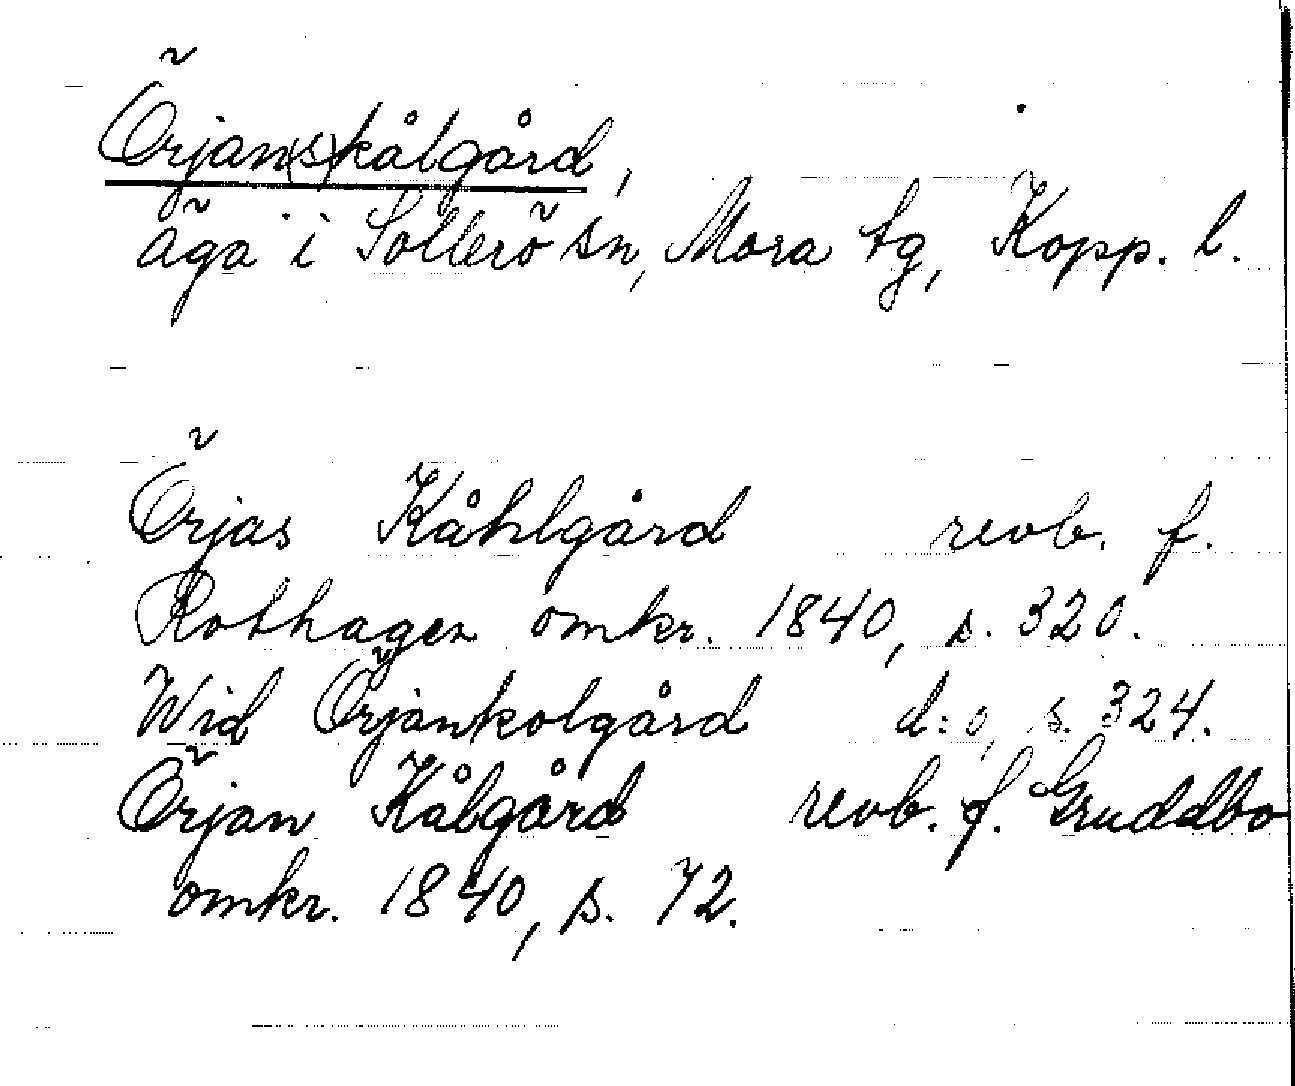 Örjan(s)kålgård,
äga i Sollerö sn, Mora tg, Kopp. l.
Örjas Kåhlgård revb. f.
Rothagen omkr. 1840, s. 320.
Wid Örjankolgård d:o, s. 324.
Örjan Kålgård revb. f. Gruddbo
omkr. 1840, s. 72.